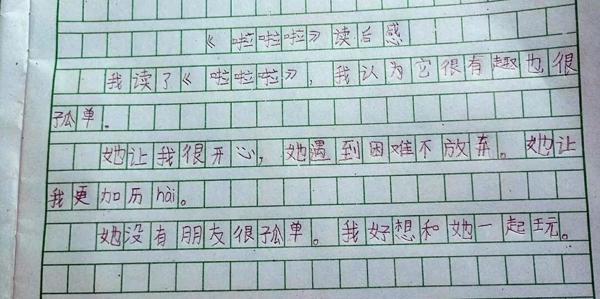 《啦啦啦》读后感
我读了《啦啦啦》，我认为它很有趣也很
孤单。
她让我很开心，她遇到困难不放弃。她让
我更加历hài。
她没有朋友很孤单。我好想和她一起玩。